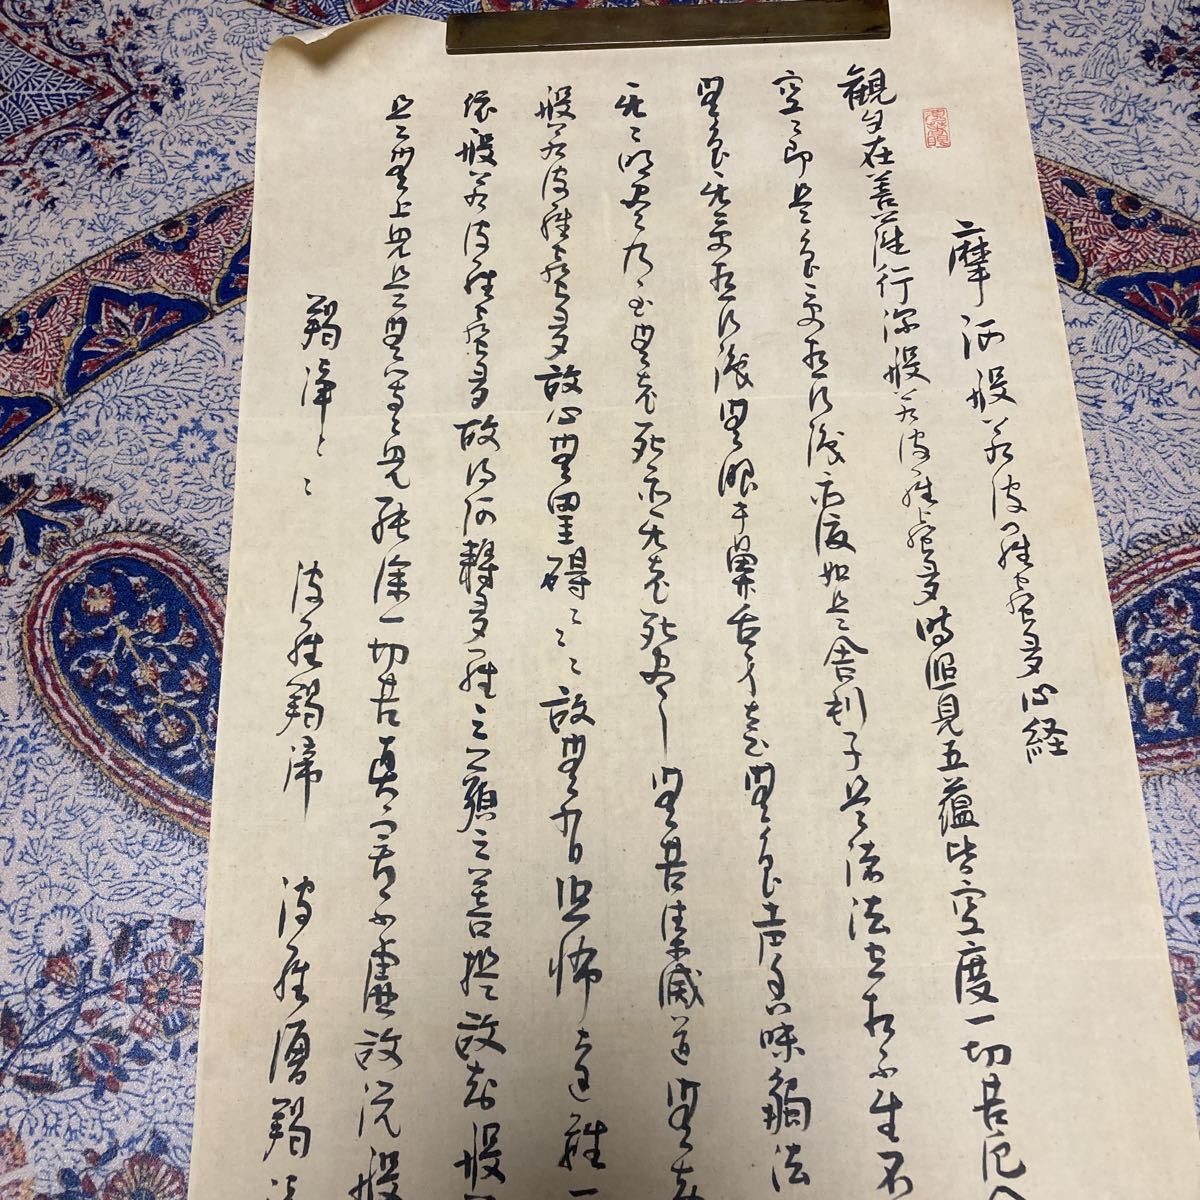 摩訶般若波羅蜜多心経
観自在菩薩行深般若波羅蜜多時照見五蘊皆空度一切苦厄
空々即是色受想行識亦復如是舎利子是諸法空相不生不
無色無受想行識無眼耳鼻舌身意無色声香味触法
無々明尽乃至無老死亦無老死尽 無苦集滅道無
般若波羅蜜多故心無罣礙々々々故無有恐怖遠離一
依般若波羅蜜多故得阿耨多羅三藐三菩提故知般
是無上咒是無等々咒能除一切苦真実不虚故説般
羯諦々々 波羅羯諦 波羅僧羯諦